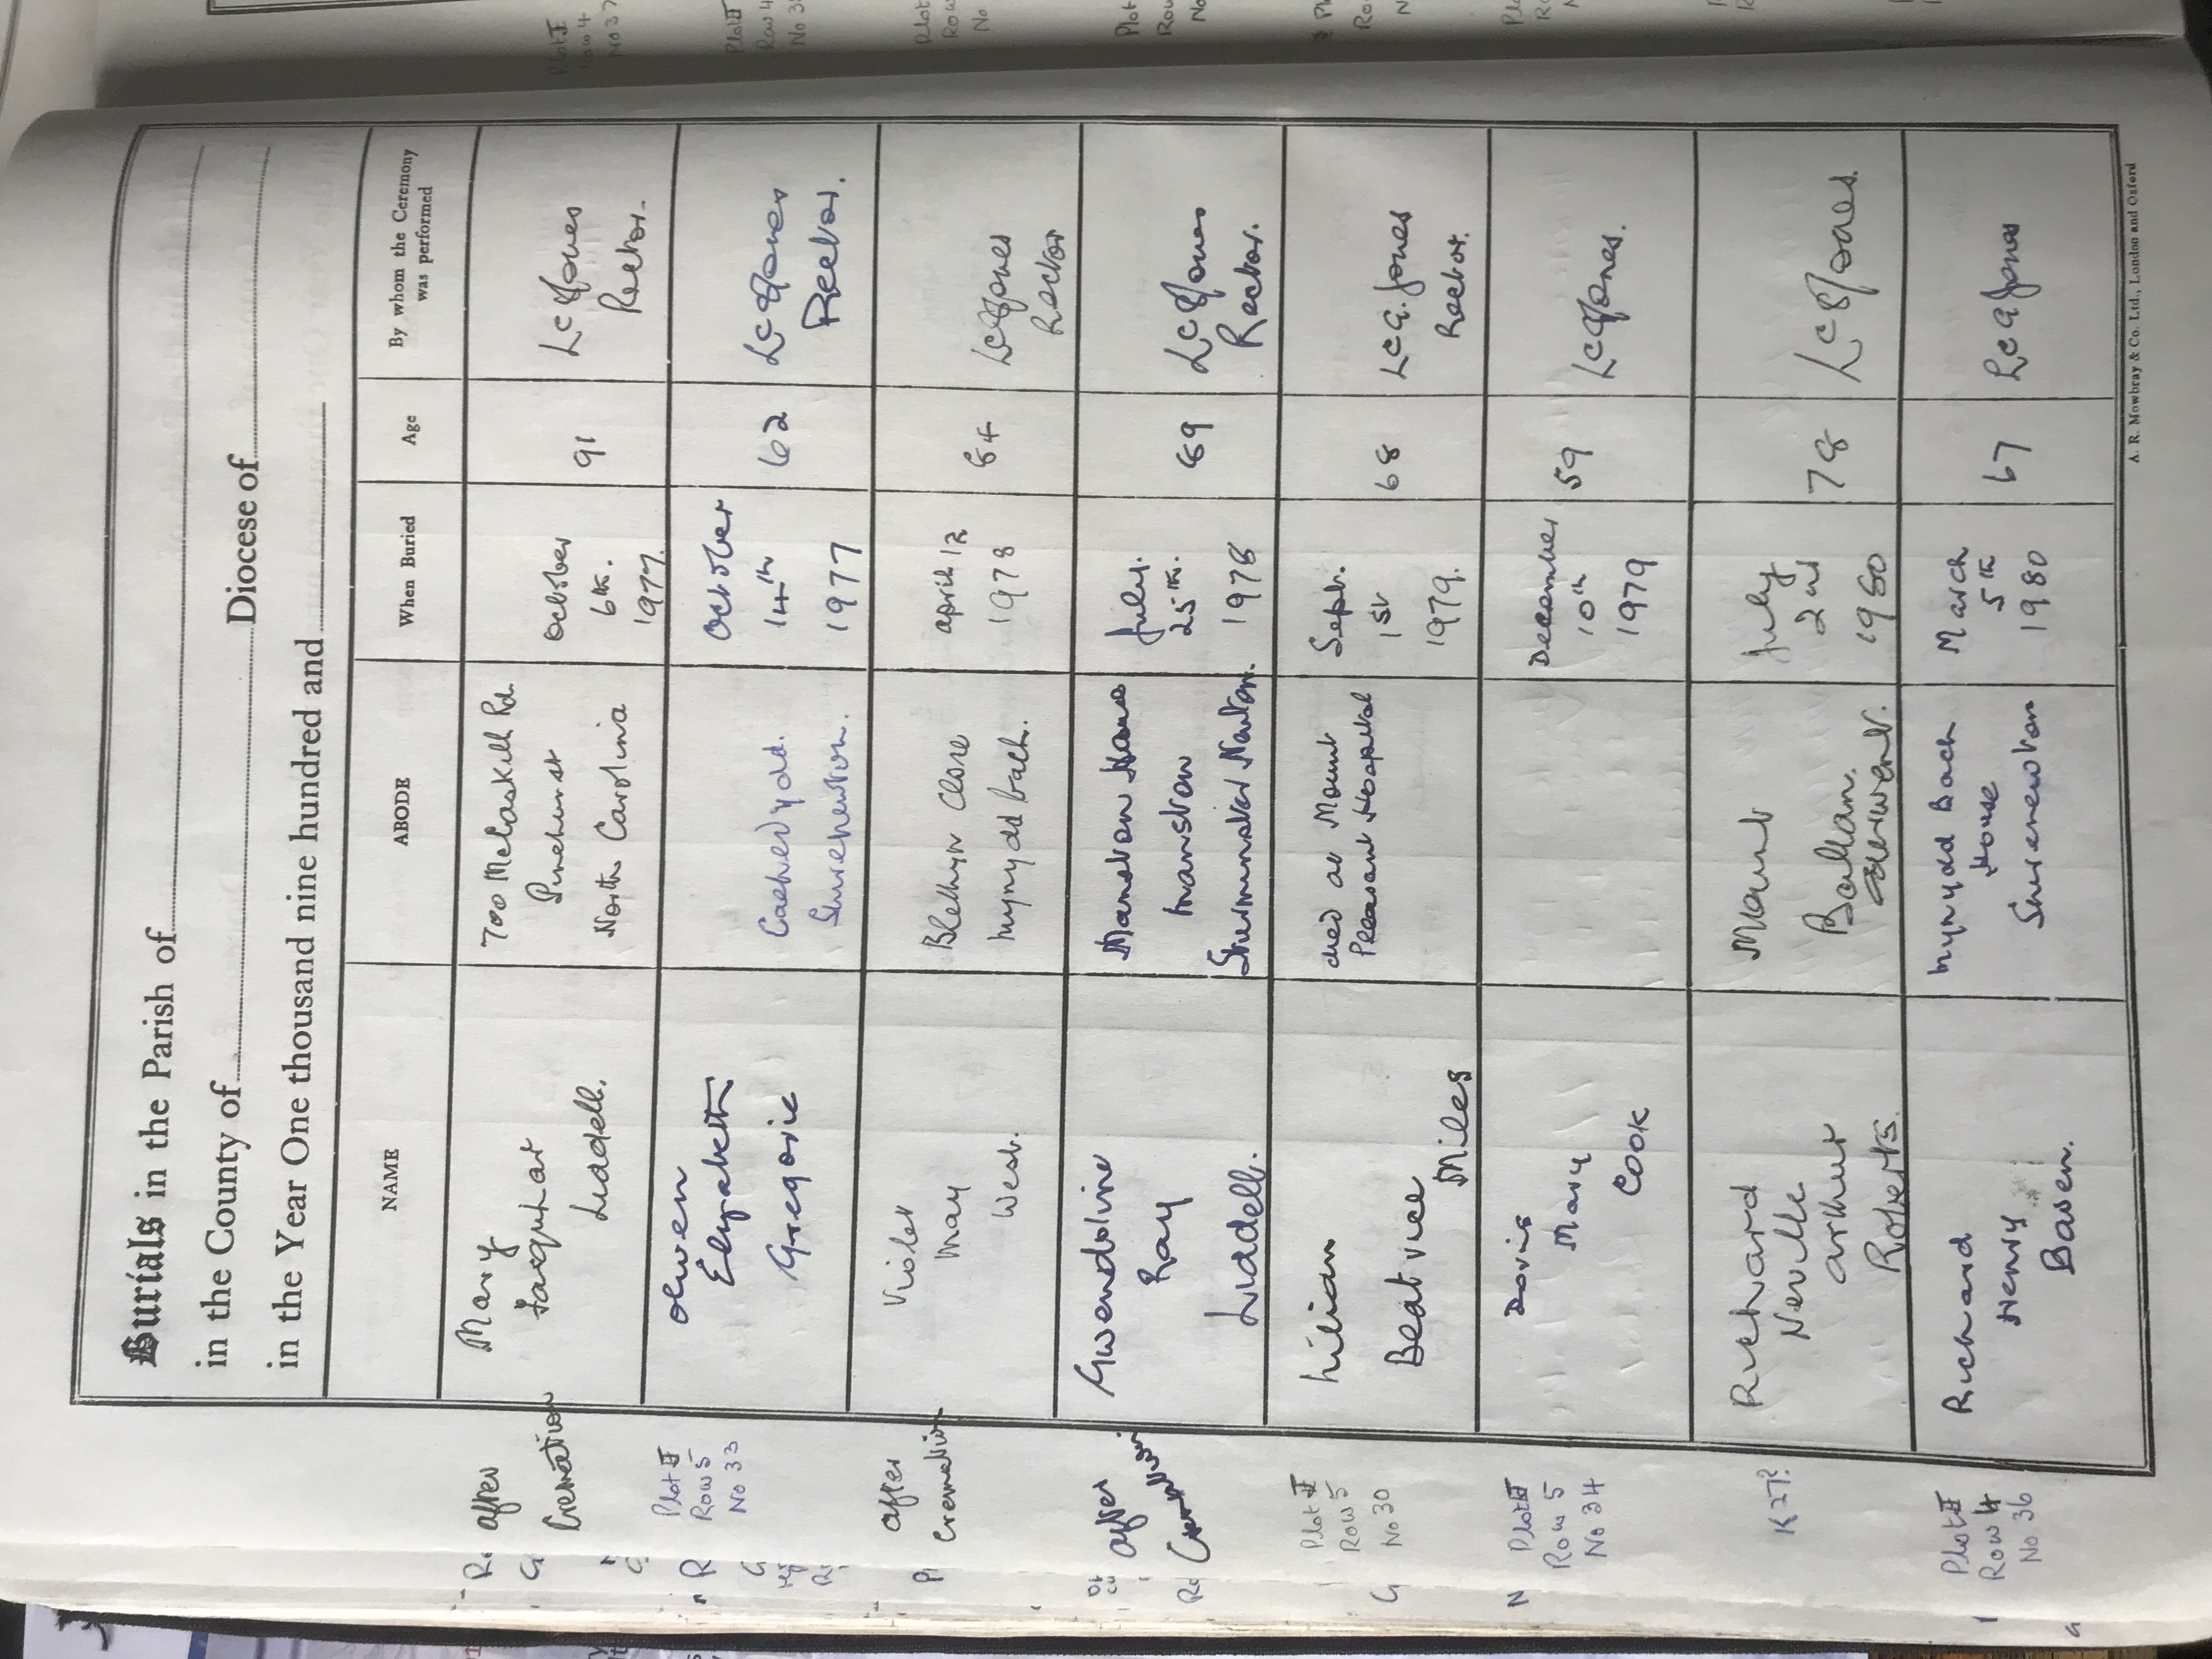 Burials in the Parish of
in the County of Diocese of
in the Year One thousand nine hundred and
NAME ABODE When Buried Age By whom the Ceremony was performed
after
Cremation
Mary
Farquhar
Liddell.
700 McCaskill Rd.
Pinehurst
North Carolina
October
6th.
1977.
91
L C A Jones
Rector.
Plot II
Row 5
No 33
Olwen
Elizabeth
Gregorie
Shirenewton.
October
14th
1977
62
L C A Jones
Rector.
after
Cremation
Violet
May
West.
Blethyn Close
Mynydd bach.
April 12
1978
84
L C A Jones
Rector
after
Cremation
Gwendoline
Ray
Liddell.
July.
25th.
1978
L C A Jones
Rector.
Plot II
Row 5
No 30
Lilian
Beatrice
Miles
died at Mount
Pleasant Hospital
Sept.
1st
1979.
68
L C A. Jones
Rector.
Plot II
Row 5
No 34
Doris
Mary
Cook
December
10th
1979
59
L C A Jones.
K27?
Richard
Neville
Arthur
Roberts.
Mount
July
2nd
1980
78
L C A Jones.
Plot II
Row 4
No 36
Richard
Henry
Mynydd Bach
House
Shirenewton
March
5th
1980
67
L C A Jones
A. R. Mowbray & Co. Ltd., London and Oxford